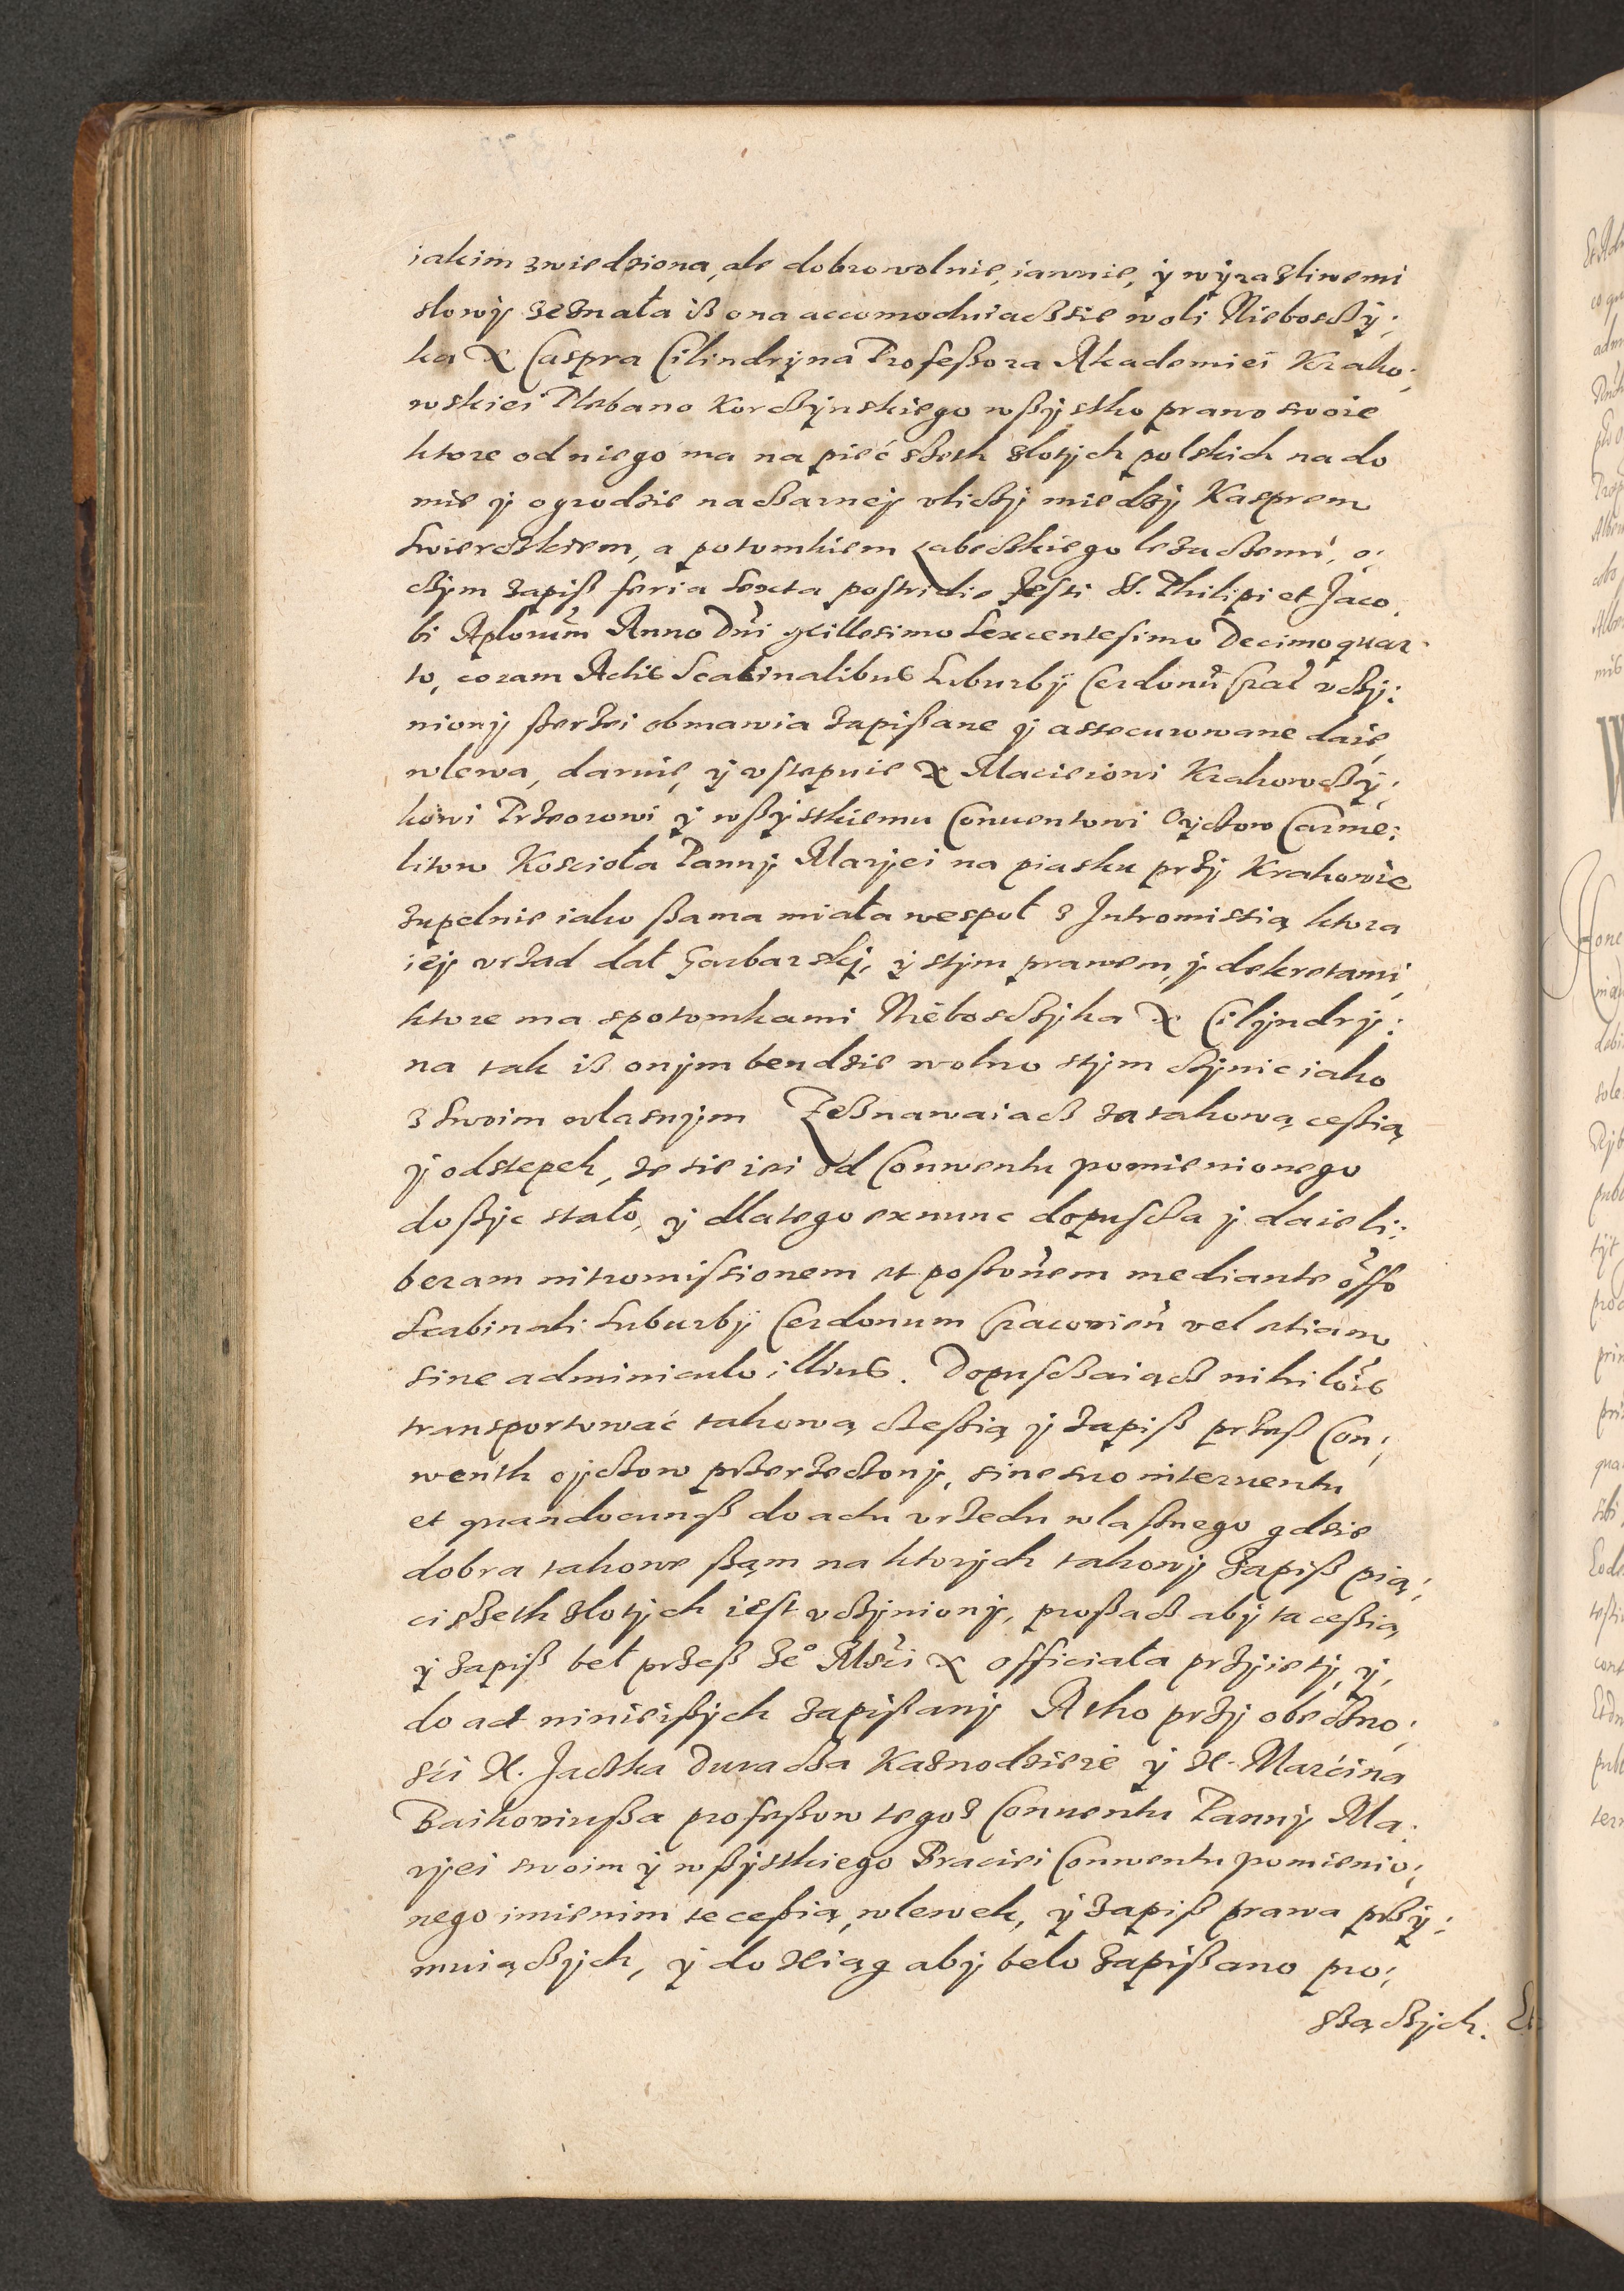 iakim zwiedziona, ale dobrowolnie, iawnie, ÿ wÿrazliwemi
slowÿ zeznała iż ona accomoduiacz sie woli Nieboszczÿ:
ka X Caspra Cilindrÿna Professora Akademiei Krako:
wskiei Plebano Korczÿnskiego wszÿstko prawo swoie
ktore od niego ma na pieć szeth zlotÿch polskich na do
mie ÿ ogrodzie na czarneÿ vliczÿ miedzÿ Kasprem
Swierczkiem, a potomkiem Łabeczkiego lezaczemi, o:
czÿm zapisz feria sexta postridie festi S. Philipi et Jaco:
bi Aplorum Anno Dni Millesimo Sexcentesimo Decimo quar
to, coram Actis Scabinalibus Suburbÿ Cerdonũ Crac̃ vczÿ:
nionÿ szerzei obmawia zapiszane ÿ assecurowane daie,
wlewa, daruie, ÿ vstepuie X Macieiowi Krakowczÿ:
kowi Przeorowi ÿ wszÿstkiemu Conuentowi Oÿczow Carme:
litow Kosciola Pannÿ Marÿei na piasku przÿ Krakowie
zupelnie iako szama miała wespoł z Intromissią ktora
ieÿ vrzad dał Garbarskÿ, ÿ stÿm prawem, ÿ dekretami,
ktore ma spotomkami Nieboszczÿka X Cilÿndrÿ:
na tak iż onÿm bendzie wolno stÿm czÿnic iako
z swoim wlasnÿm Zeznawaiacz za takową cessią
ÿ odstepek, ze sie iei od Conwentu pomienionego
doszÿc stało, ÿ dlatego exnunc dopuscza ÿ daie li:
beram intromissionem et possonem mediante offo
Scabinali Suburbÿ Cerdonum Cracovien vel etiam
sine adminiculo illius. Dopusczaiącz nihilois
transportować takową czessią ÿ zapisz przesz Con:
wenth oÿczow przerzeczonÿ, sine suo interuentu
et quandocunqz do actu vrzedu wlasznego gdzie
dobra takowe sząm na ktorÿch takowÿ zapisz pią:
ci szeth zlotÿch iest vczÿnionÿ, proszacz abÿ ta cessia
ÿ zapisz beł przesz Je° Msci X officiała przÿietÿ, ÿ,
do act ninieiszÿch zapiszanÿ Atho przÿ obeczno:
sći X. Jaczka Duracza Kaznodzieie ÿ X. Marćina
Baikowiusza professow tegoz Conuentu Pannÿ Ma:
rÿei swoim ÿ wszÿstkiego Braciei Conwentu pomienio:
nego imienim te cessią, wlewek, ÿ zapisz prawa przÿ:
muiączÿch, ÿ do xiąg abÿ belo zapiszano pro:
szączÿch.